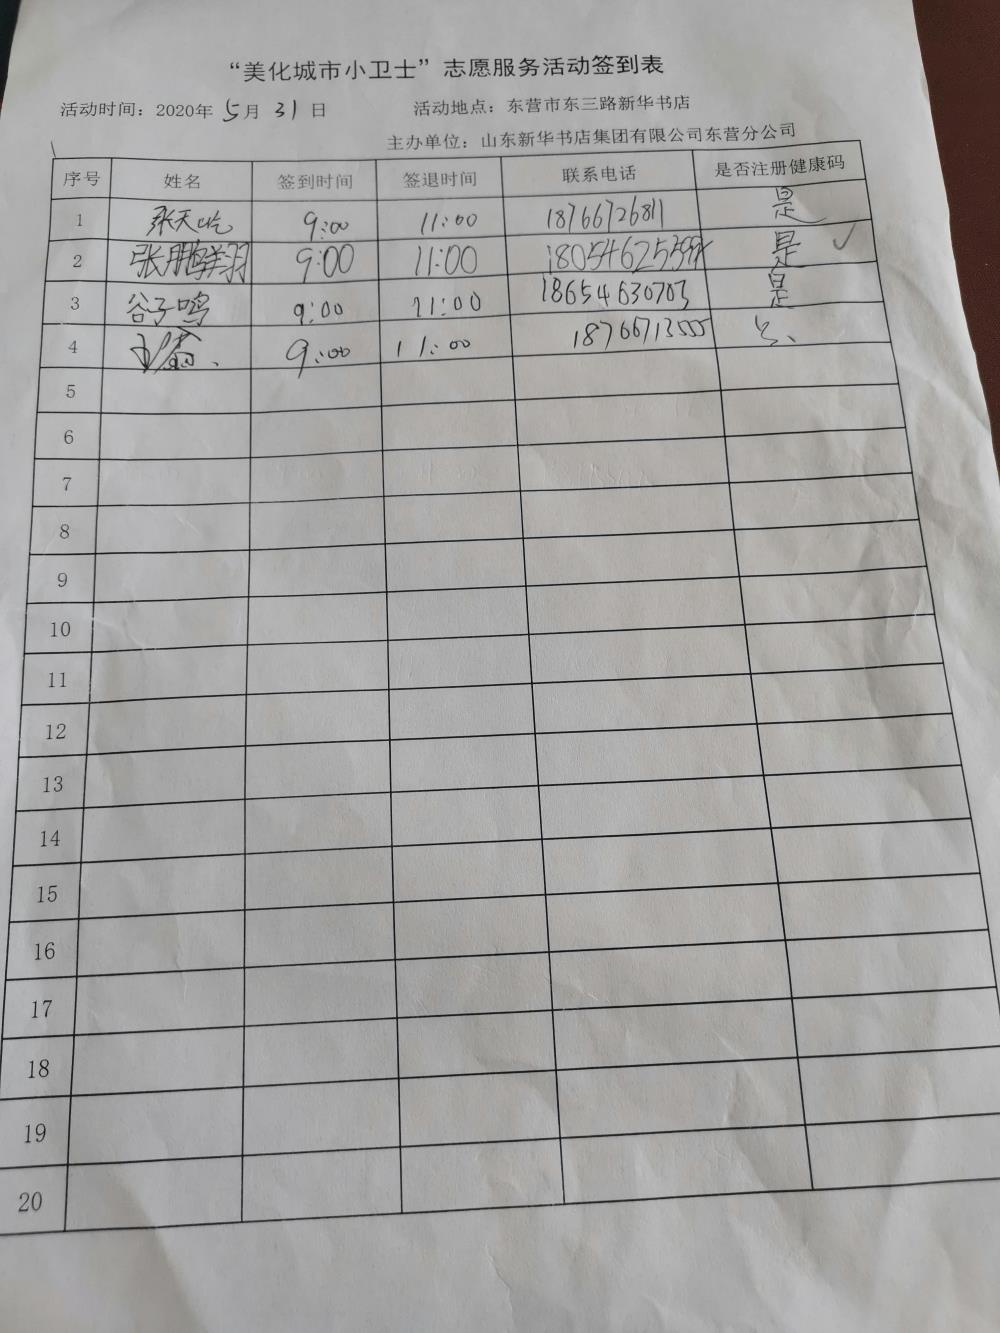 “美化城市小卫士”志愿服务活动签到表
活动时间：2020年 5月 31日 活动地点：东营市东三路新华书店
主办单位：山东新华书店集团有限公司东营分公司
序号 姓名 签到时间 签退时间 联系电话 是否注册健康码
1 张天屹 9:00 11:00 18766726811 是
2 张鹏翔羽 9:00 11:00 是 ✓
3 谷子鸣 9:00 11:00 18654630703 是
4 9:00 11:00 18766713555
5
6
7
8
9
10
11
12
13
14
15
16
17
18
19
20